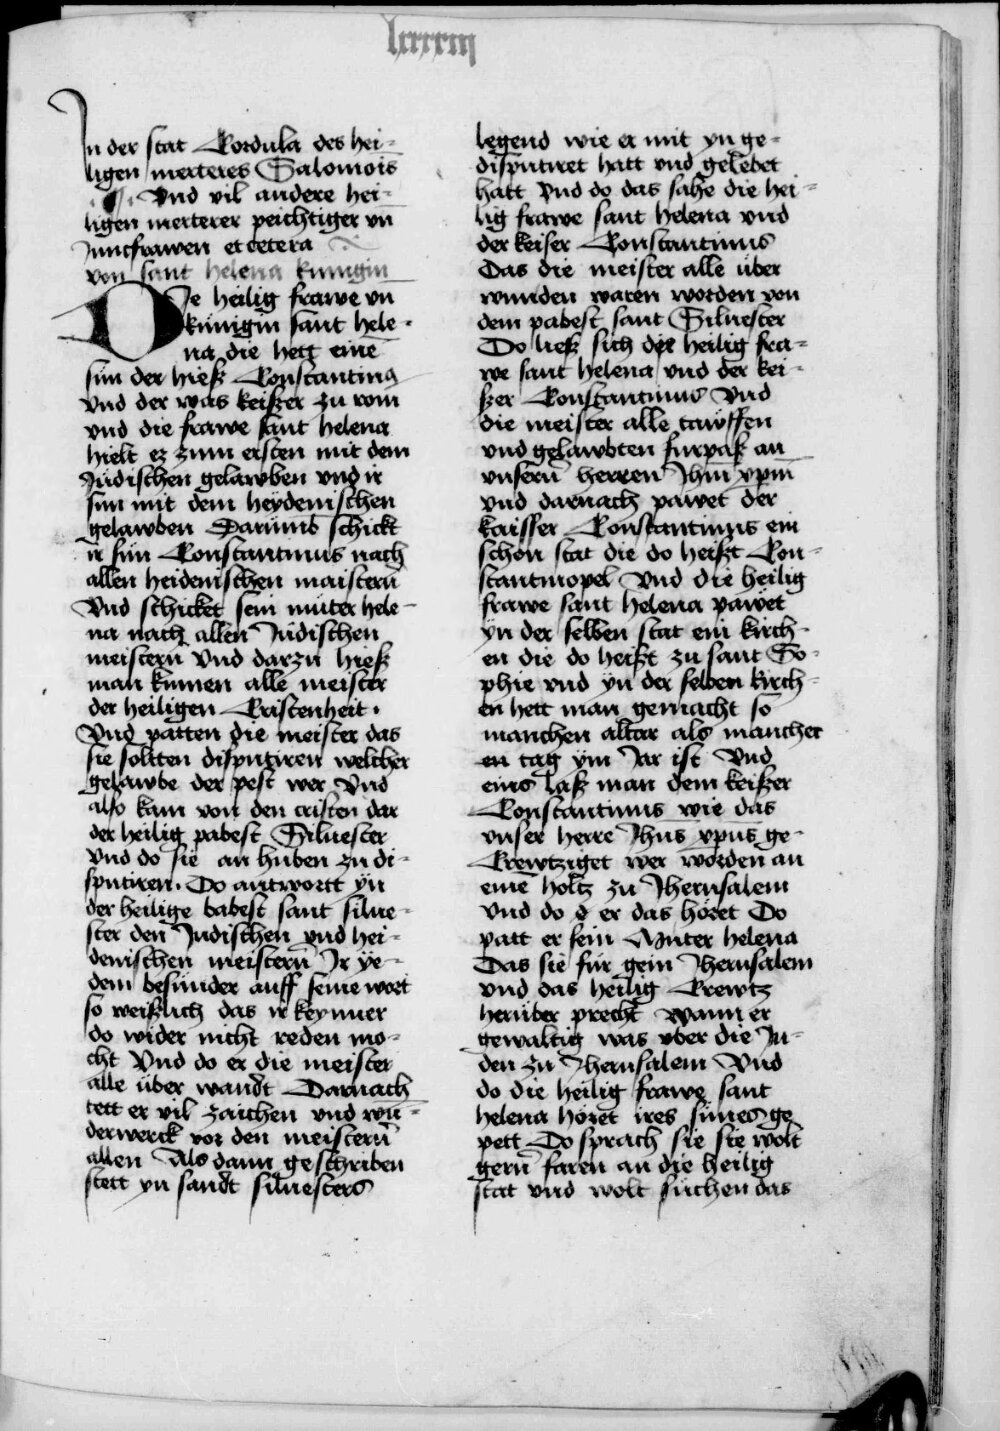 lxxxxiij
In der stat Cordula des hei-
ligen merteres Salomois
Vnd vil andere hei-
ligen merterer peichtiger vn̄
Junckfrawen et cetera
von sant helena kunigin
DJe heilig frawe vn̄
künigin sant hele-
na die hett einē
sün der hieß Constantinꝰ
vnd der was keißer zu rom
vnd die frawe sant helena
hielt eß zum ersten mit dem
Jüdischen gelawben vnd ir
sün mit dem heydenischen
gelawben Darümb schickt
ir sün Constantinus nach
allen heidenischen maistern̄
Vnd schicket sein müter hele-
na nach allen Jüdischen
meistern̄ Vnd darzu hieß
man kumen alle meister
der heiligen Cristenheit.
Vnd patten die meister das
sie soltten disputiren welcher
gelawbe der pest wer Vnd
also kam von den cristen dar
der heilig pabest Siluester
Vnd do sie an huben zu di-
sputiren. Do antwortt yn
der heilige babest sant silue-
ster den Judischen vnd hei-
denischen meistern̄ Jr ye-
dem besünder auff seine wort
so weißlich das ir keynner
do wider nicht reden mo-
cht Vnd do er die meister
alle über wandt Darnach
tett er vil zaichen vnd wü-
derwerck vor den meistern̄
allen Als dann geschriben
stett yn sandt siluesters
legend wie er mit yn ge-
disputiret hatt vnd gelebet
hatt Vnd do das sahe die hei-
lig frawe sant helena vnd
der keiser Constantinus
Das die meister alle über
wunden waren worden von
dem pabest sant Siluester
Do ließ sich der heilig fra-
we sant helena vnd der kei-
ßer Constantinus Vnd
die meister alle tawffen
vnd gelawbten furpaß an
vnsern̄ herren Jhm̄ xpm̄
vnd darnach pawet der
kaisser Constantinus ein
schon stat die do heißt Con-
stantinopel Vnd die heilig
frawe sant helena pawet
yn der selben stat ein kirch-
en die do heißt zu sant So-
phie vnd yn der selben kirch-
en hett man gemacht so
manchen altar als mancher
en tag ym Jar ist Vnd
eins laß man dem keißer
Constantinus wie das
vnser herre Jhus xpus ge-
Crewtziget wer worden an
einē holtz zu Jherusalem
Vnd do er das höret Do
patt er sein Muter helena
Das sie für gein Jherusalem
vnd das heilig Crewtz
herüber precht wann er
gewaltig was vber die Ju-
den zu Jherusalem Vnd
do die heilig frawe sant
helena höret ires sünes ge
pett Do sprach sie sie wolt
gern̄ faren an die heilig
stat vnd wolt süchen das